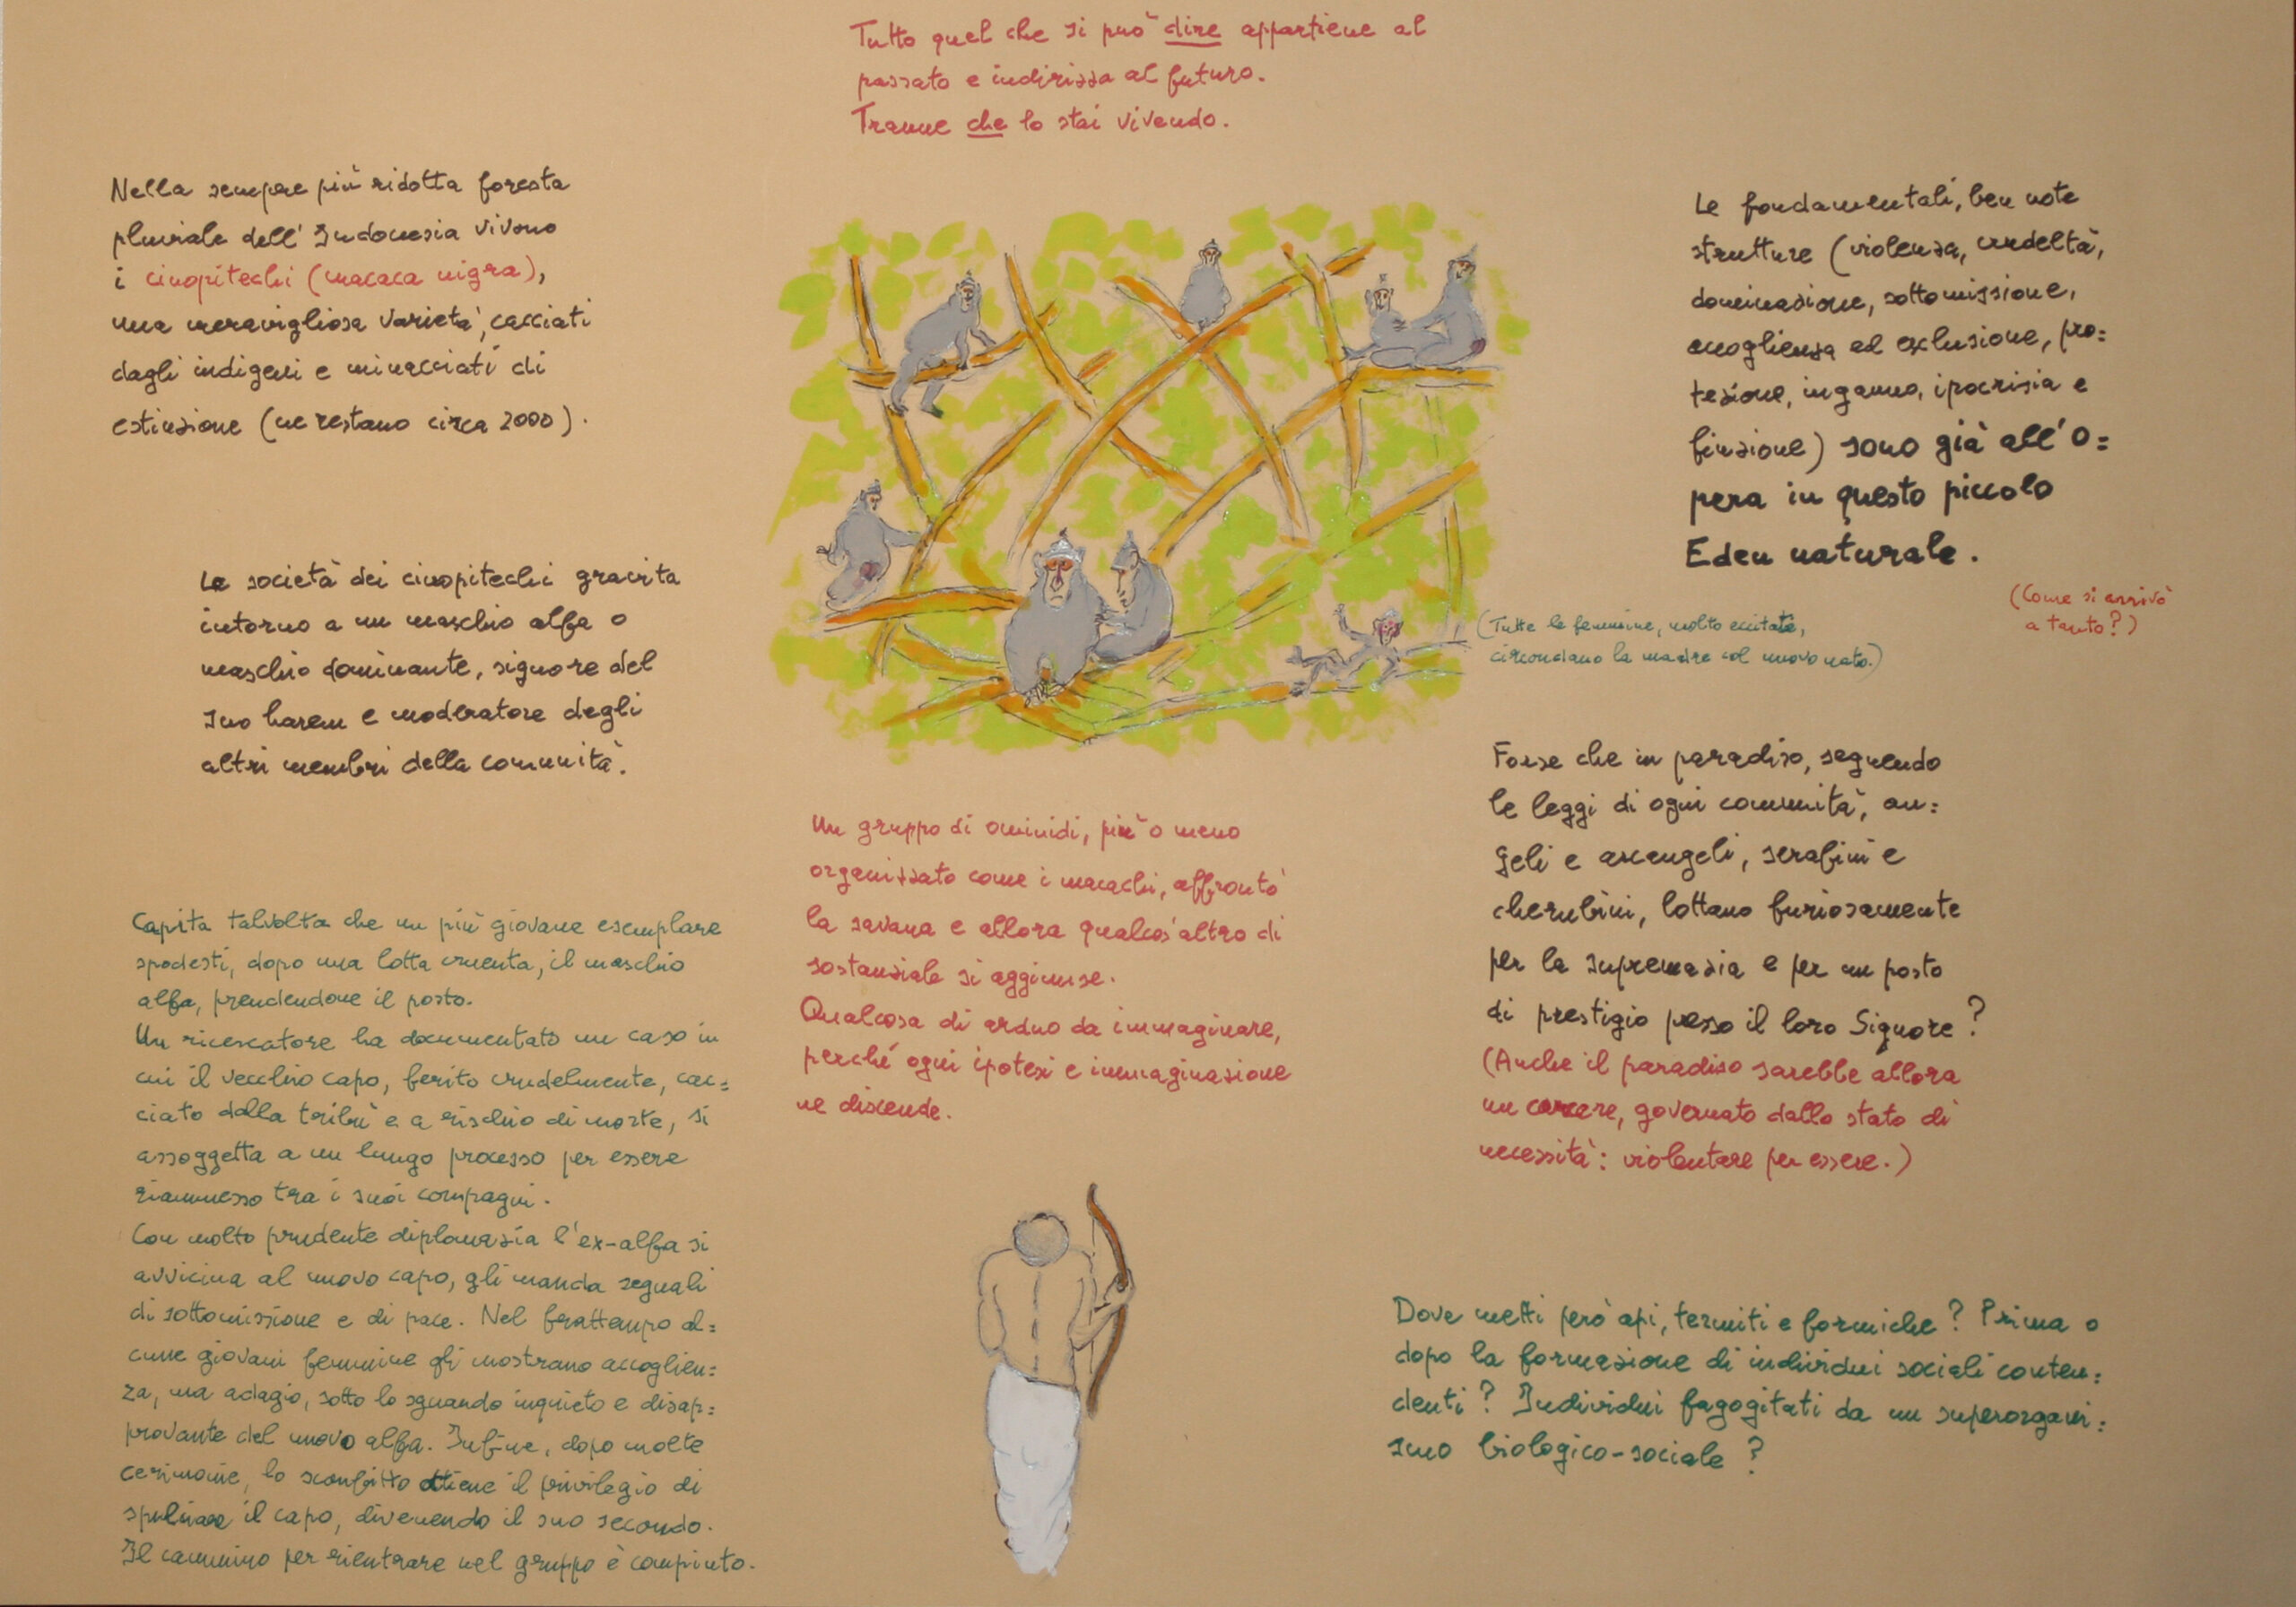 Tutto quel che si può dire appartiene al
passato e indirizza al futuro.
Tranne che lo stai vivendo.
Nella sempre più ridotta foresta
pluviale dell'Indonesia vivono
i cinopitechi (macaca nigra),
una meravigliosa varietà, cacciati
dagli indigeni e minacciati di
estinzione (ne restano circa 2000).
La società dei cinopitechi gravita
intorno a un maschio alfa o
maschio dominante, signore del
suo harem e moderatore degli
altri membri della comunità.
Capita talvolta che un più giovane esemplare
spodesti, dopo una lotta cruenta, il maschio
alfa, prendendone il posto.
Un ricercatore ha documentato un caso in
cui il vecchio capo, ferito crudelmente, cac=
ciato dalla tribù e a rischio di morte, si
assoggetta a un lungo processo per essere
riammesso tra i suoi compagni.
Con molto prudente diplomazia l'ex-alfa si
avvicina al nuovo capo, gli manda segnali
di sottomissione e di pace. Nel frattempo al=
cune giovani femmine gli mostrano accoglien=
za, ma adagio, sotto lo sguardo inquieto e disap=
provante del nuovo alfa. Infine, dopo molte
cerimonie, lo sconfitto ottiene il privilegio di
spulciare il capo, divenendo il suo secondo.
Il cammino per rientrare nel gruppo è compiuto.
Un gruppo di ominidi, più o meno
organizzato come i macachi, affrontò
la savana e allora qualcos'altro di
sostanziale si aggiunse.
Qualcosa di arduo da immaginare,
perché ogni ipotesi e immaginazione
ne discende.
Le fondamentali, ben note
strutture (violenza, crudeltà,
dominazione, sottomissione,
accoglienza ed exclusione, pro=
tezione, inganno, ipocrisia e
finzione) sono già all'o=
pera in questo piccolo
Eden naturale.
(Come si arrivò
a tanto?)
(Tutte le femmine, molto eccitate,
circondano la madre col nuovo nato.)
Forse che in paradiso, seguendo
le leggi di ogni comunità, an=
geli e arcangeli, serafini e
cherubini, lottano furiosamente
per la supremazia e per un posto
di prestigio presso il loro Signore?
(Anche il paradiso sarebbe allora
un carcere, governato dallo stato di
necessità: violentare per essere.)
Dove metti però api, termiti e formiche? Prima o
dopo la formazione di individui sociali conten=
denti? Individui fagogitati da un superorgani=
smo biologico-sociale?